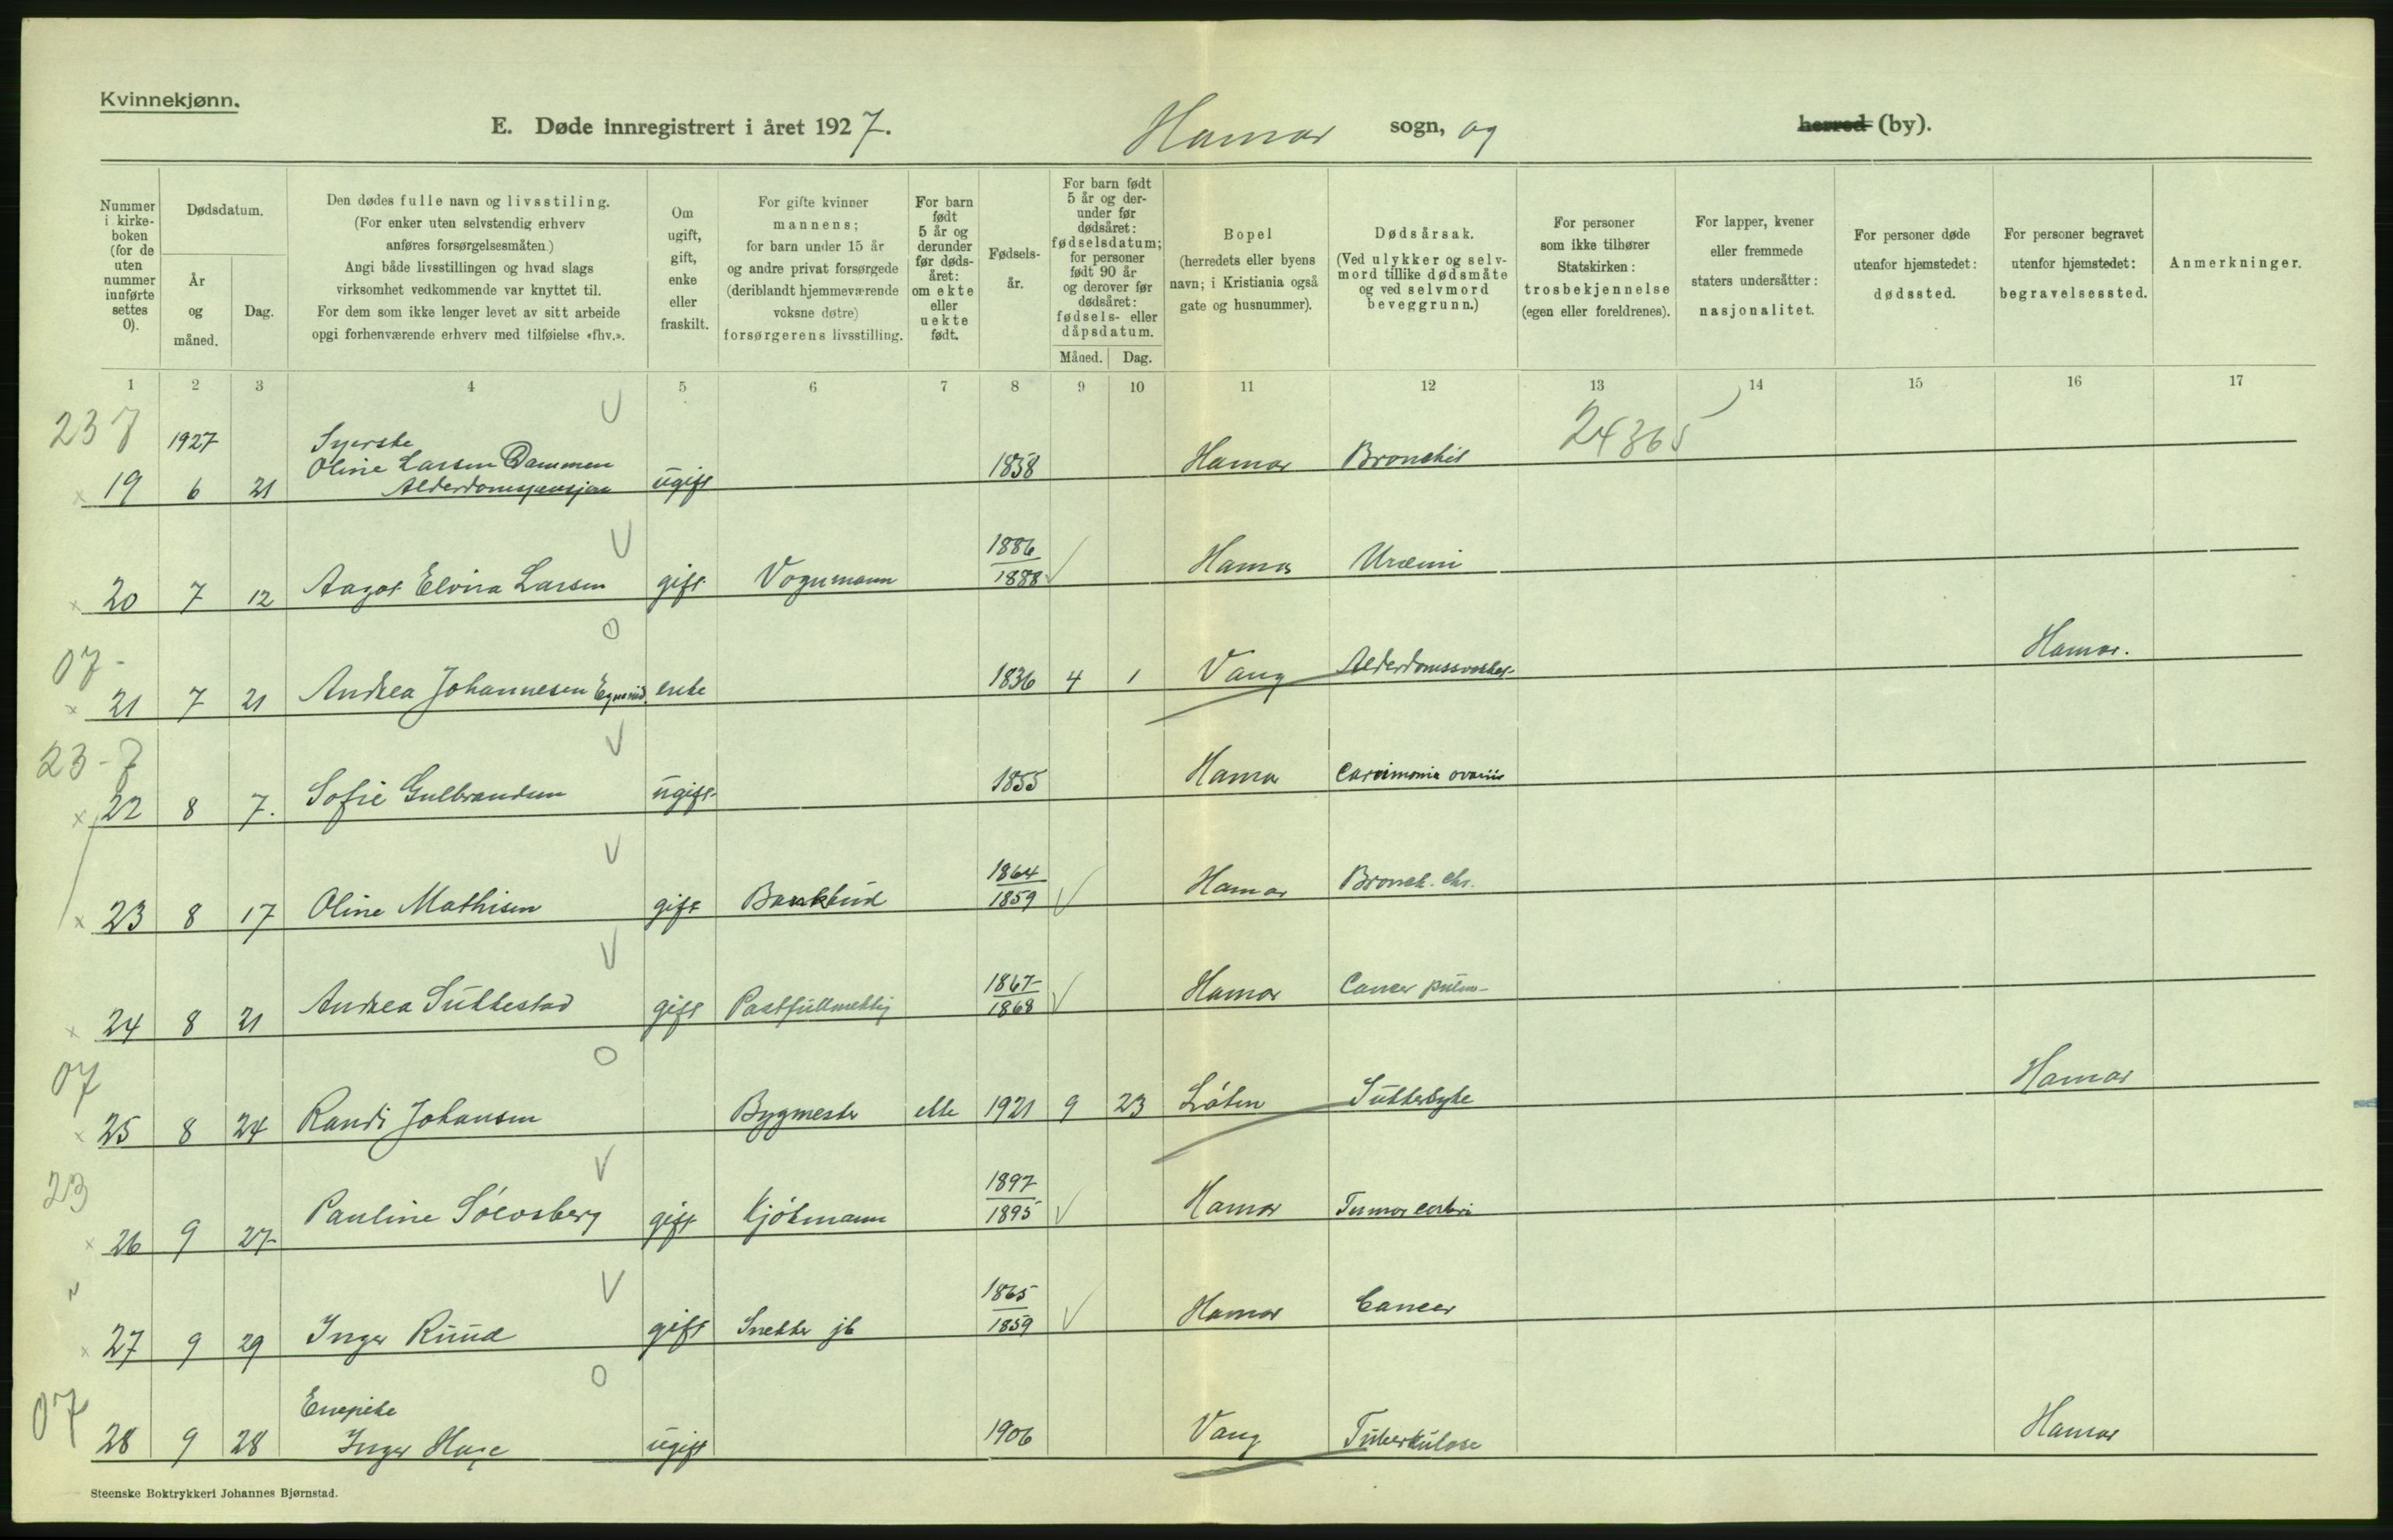 Kvinnekjønn.
E. Døde innregistrert i året 1927. Hamar sogn, og herred (by).
Nummer i kirkeboken (for de uten nummer innførte settes 0).
Dødsdatum.
År og måned.
Dag.
Den dødes fulle navn og livsstiling.
(For enker uten selvstendig erhverv anføres forsørgelsesmåten.)
Angi både livsstillingen og hvad slags virksomhet vedkommende var knyttet til.
For dem som ikke lenger levet av sitt arbeide opgi forhenværende erhverv med tilføielse «fhv.».
Om ugift, gift, enke eller fraskilt.
For gifte kvinner mannens; for barn under 15 år og andre privat forsørgede (deriblandt hjemmeværende voksne døtre) forsørgerens livsstilling.
For barn født 5 år og derunder før dødsåret: om ekte eller uekte født.
Fødselsår.
For barn født 5 år og derunder før dødsåret: fødselsdatum; for personer født 90 år og derover før dødsåret: fødsels- eller dåpsdatum.
Måned. Dag.
Bopel (herredets eller byens navn; i Kristiania også gate og husnummer).
Dødsårsak. (Ved ulykker og selvmord tillike dødsmåte og ved selvmord beveggrunn.)
For personer som ikke tilhører Statskirken: trosbekjennelse (egen eller foreldrenes).
For lapper, kvener eller fremmede staters undersåtter: nasjonalitet.
For personer døde utenfor hjemstedet: dødssted.
For personer begravet utenfor hjemstedet: begravelsessted.
Anmerkninger.
1 2 3 4 5 6 7 8 9 10 11 12 13 14 15 16 17
237 1927 Syerske 24365
Oline Larsen Dammen
19 6 21 Alderdomspensjon ugift 1858 Hamar Bronchit
20 7 12 Aagot Elvira Larsen gift Vognmann 1886 1888 Hamar Uræmi
07
21 7 21 Andrea Johannesen enke 1836 4 1 Vang Hamar.
23-7
22 8 7. Sofie Gulbrandsen ugift 1855 Hamar
23 8 17 Oline Mathisen gift Bankbud 1864 1859 Hamar Bronch. chr.
24 8 21 Andrea Suttestad gift Postfullmektig 1867 1868 Hamar Cancer pulm
07
25 8 24 Randi Johansen Bygmester ekte 1921 9 23 Löten Sukkersyke Hamar
23
26 9 27 Pauline Sölvsberg gift Kjömann 1897 1895 Hamar Tumor cerebri
"
27 9 29 Inger Ruud gift Snekker 1865 1859 Hamar Cancer
07 Enepike
28 9 28 Inger ugift 1906 Vang Tuberkulose Hamar
Steenske Boktrykkeri Johannes Bjørnstad.